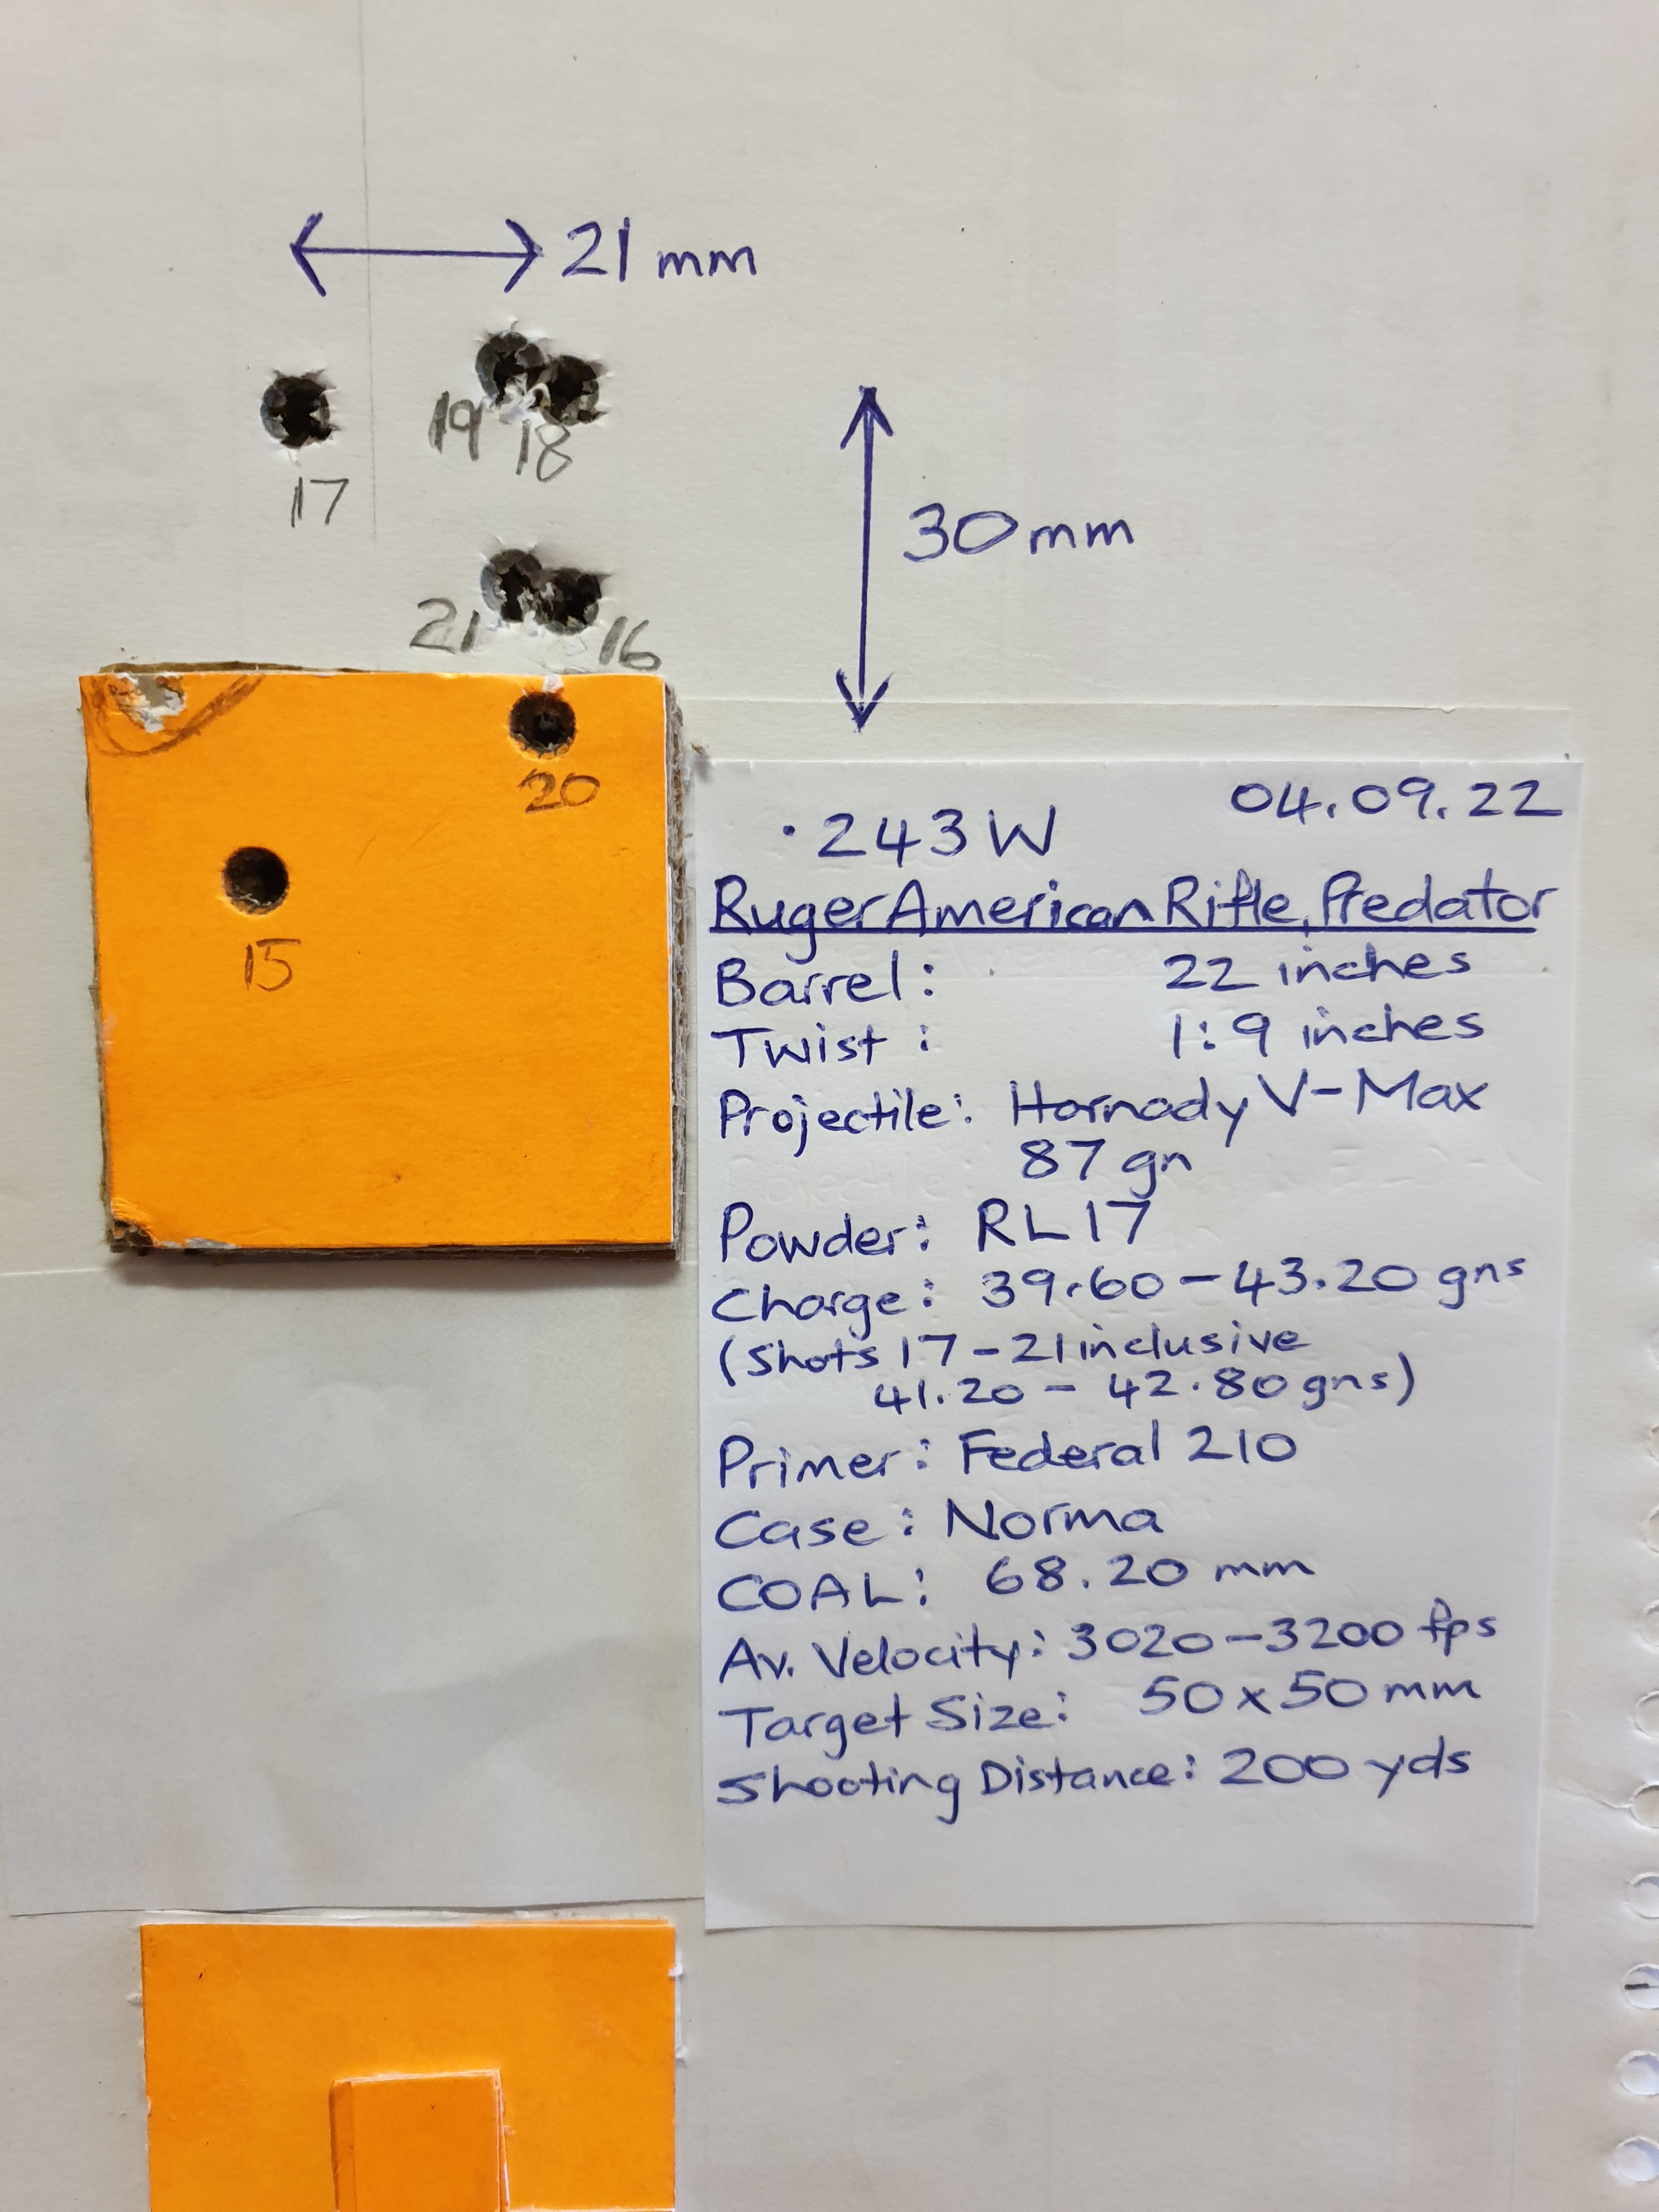 21 mm
19
18
17
30 mm
21
16
20
15
04.09.22
.243 W
Ruger American Rifle, Predator
Barrel: 22 inches
Twist: 1:9 inches
Projectile: Hornady V-Max
87 gn
Powder: RL17
Charge: 39.60 - 43.20 gns
(Shots 17 - 21 inclusive
41.20 - 42.80 gns)
Primer: Federal 210
Case: Norma
COAL: 68.20 mm
Av. Velocity: 3020 - 3200 fps
Target Size: 50 x 50 mm
Shooting Distance: 200 yds